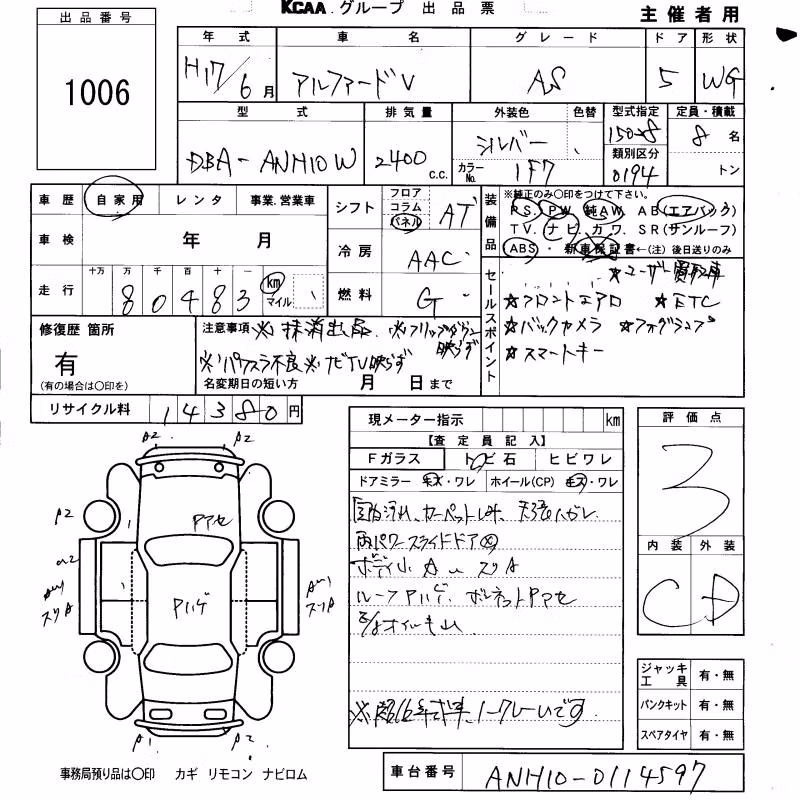 KCAA.グループ 出品票
主催者用
出品番号
1006
年式 車名 グレード ドア 形状
H17/6月 アルファードV AS 5 WG
型式 排気量 外装色 色替 型式指定 定員・積載
DBA-ANH10W 2400 c.c. シルバー 8名
カラーNo. 1F7 類別区分 0194 トン
車歴 自家用 レンタ 事業.営業車
車検 年 月
走行 十万 万 千 百 十 一
80483 km マイル
シフト フロア コラム パネル AT
冷房 AAC
燃料 G
装備品
※純正のみ〇印をつけて下さい。
PS. PW. 純AW. AB(エアバック)
TV. ナビ. カワ. SR(サンルーフ)
ABS ・ 新車保証書←(注) 後日送りのみ
セールスポイント
★ユーザー買取車
★フロントエアロ ★ETC
★バックカメラ ★フォグランプ
★スマートキー
修復歴 箇所
有
(有の場合は〇印を)
注意事項 ※抹消出品
※パワスラ不良 ※ナビTV映らず
名変期日の短い方 月 日まで
リサイクル料 14380円
現メーター指示 km
【査定員記入】
Fガラス トビ石 ヒビワレ
ドアミラー キズ・ワレ ホイール(CP) キズ・ワレ
両パワースライドドア
ルーフアハゲ、ボンネットPアセ
評価点
3
内装 外装
C D
ジャッキ工具 有・無
パンクキット 有・無
スペアタイヤ 有・無
A2 A2
A2
Pアセ
Pハゲ
A1 A2
事務局預り品は〇印 カギ リモコン ナビロム
車台番号 ANH10-0114597